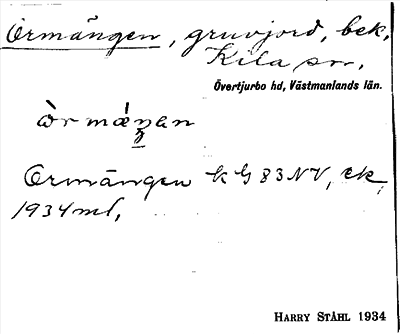 Ormängen, gruvjord, bek.
Kila sn,
Övertjurbo hd, Västmanlands län.
òrmáŋen
Ormängen k G 83 NV, ek,
1934 ml,
HARRY STÅHL 1934